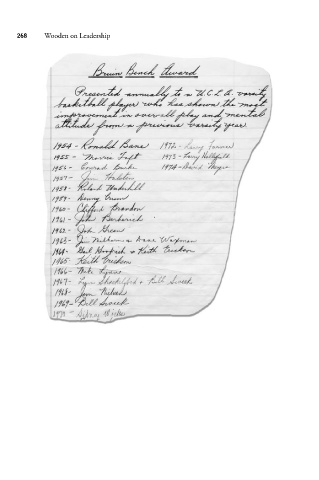 268 Wooden on Leadership
Bruin Bench Award
Presented annually to a U.C.L.A. varsity
basketball player who has shown the most
improvement in over-all play and mental
attitude from a previous varsity year.
1954 - Ronald Bane 1972 - Larry Farmer
1955 - Morris Taft 1973 - Larry Hollyfield
1956 - Conrad Burke 1974 - David Meyers
1957 - Jim Halsten
1958 - Roland Underhill
1959 - Denny Crum
1960 - Clifford Brandon
1961 - John Berberich
1962 - John Green
1963 - Jim Milhorn & Isaac Waxman
1964 - Gail Goodrich & Keith Erickson
1965 - Keith Erickson
1966 - Mike Lynn
1967 - Lynn Shackelford & Bill Sweek
1968 - Jim Nielsen
1969 - Bill Sweek
1970 - Sidney Wicks